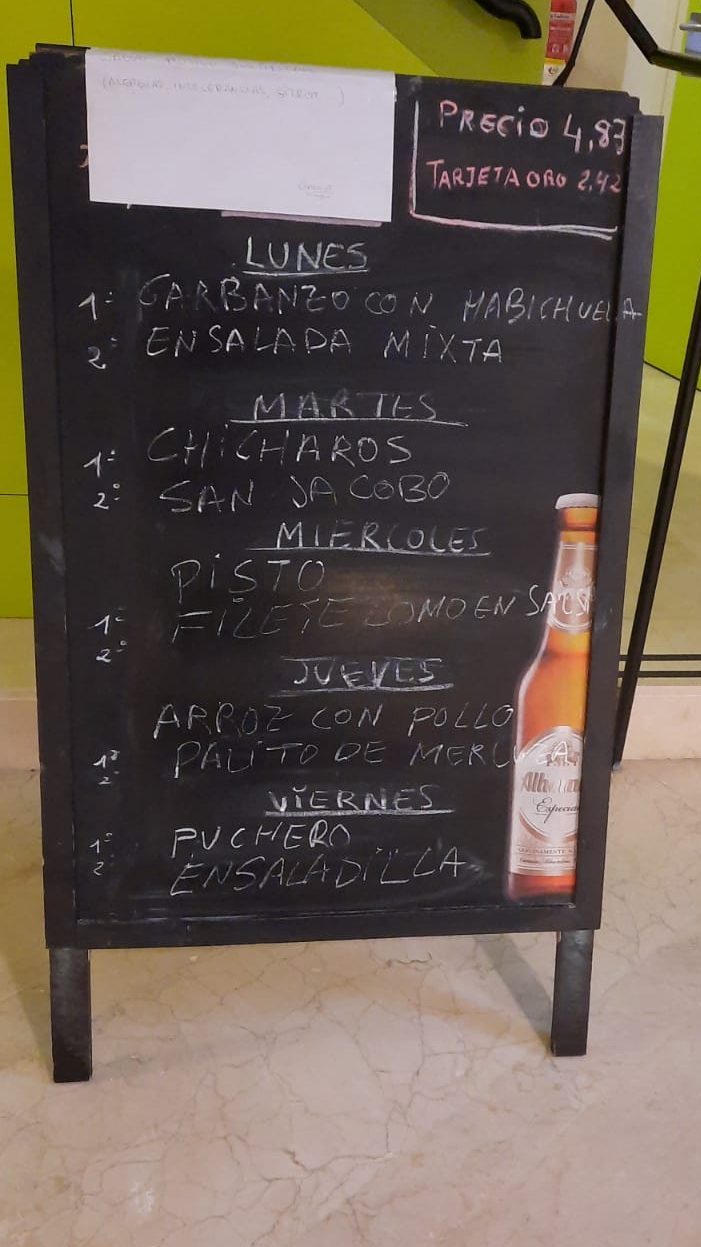 (ALERGIAS, INTOLERANCIAS, )
PRECIO 4,83
TARJETA ORO 2,42
LUNES
1º GARBANZO CON HABICHUELA
2º ENSALADA MIXTA
MARTES
1º CHICHAROS
2º SAN JACOBO
MIERCOLES
PISTO
1º FILETE LOMO EN SALSA
2º
JUEVES
ARROZ CON POLLO
1º PALITO DE MERLUZA
2º
VIERNES
1º PUCHERO
2º ENSALADILLA
Especial